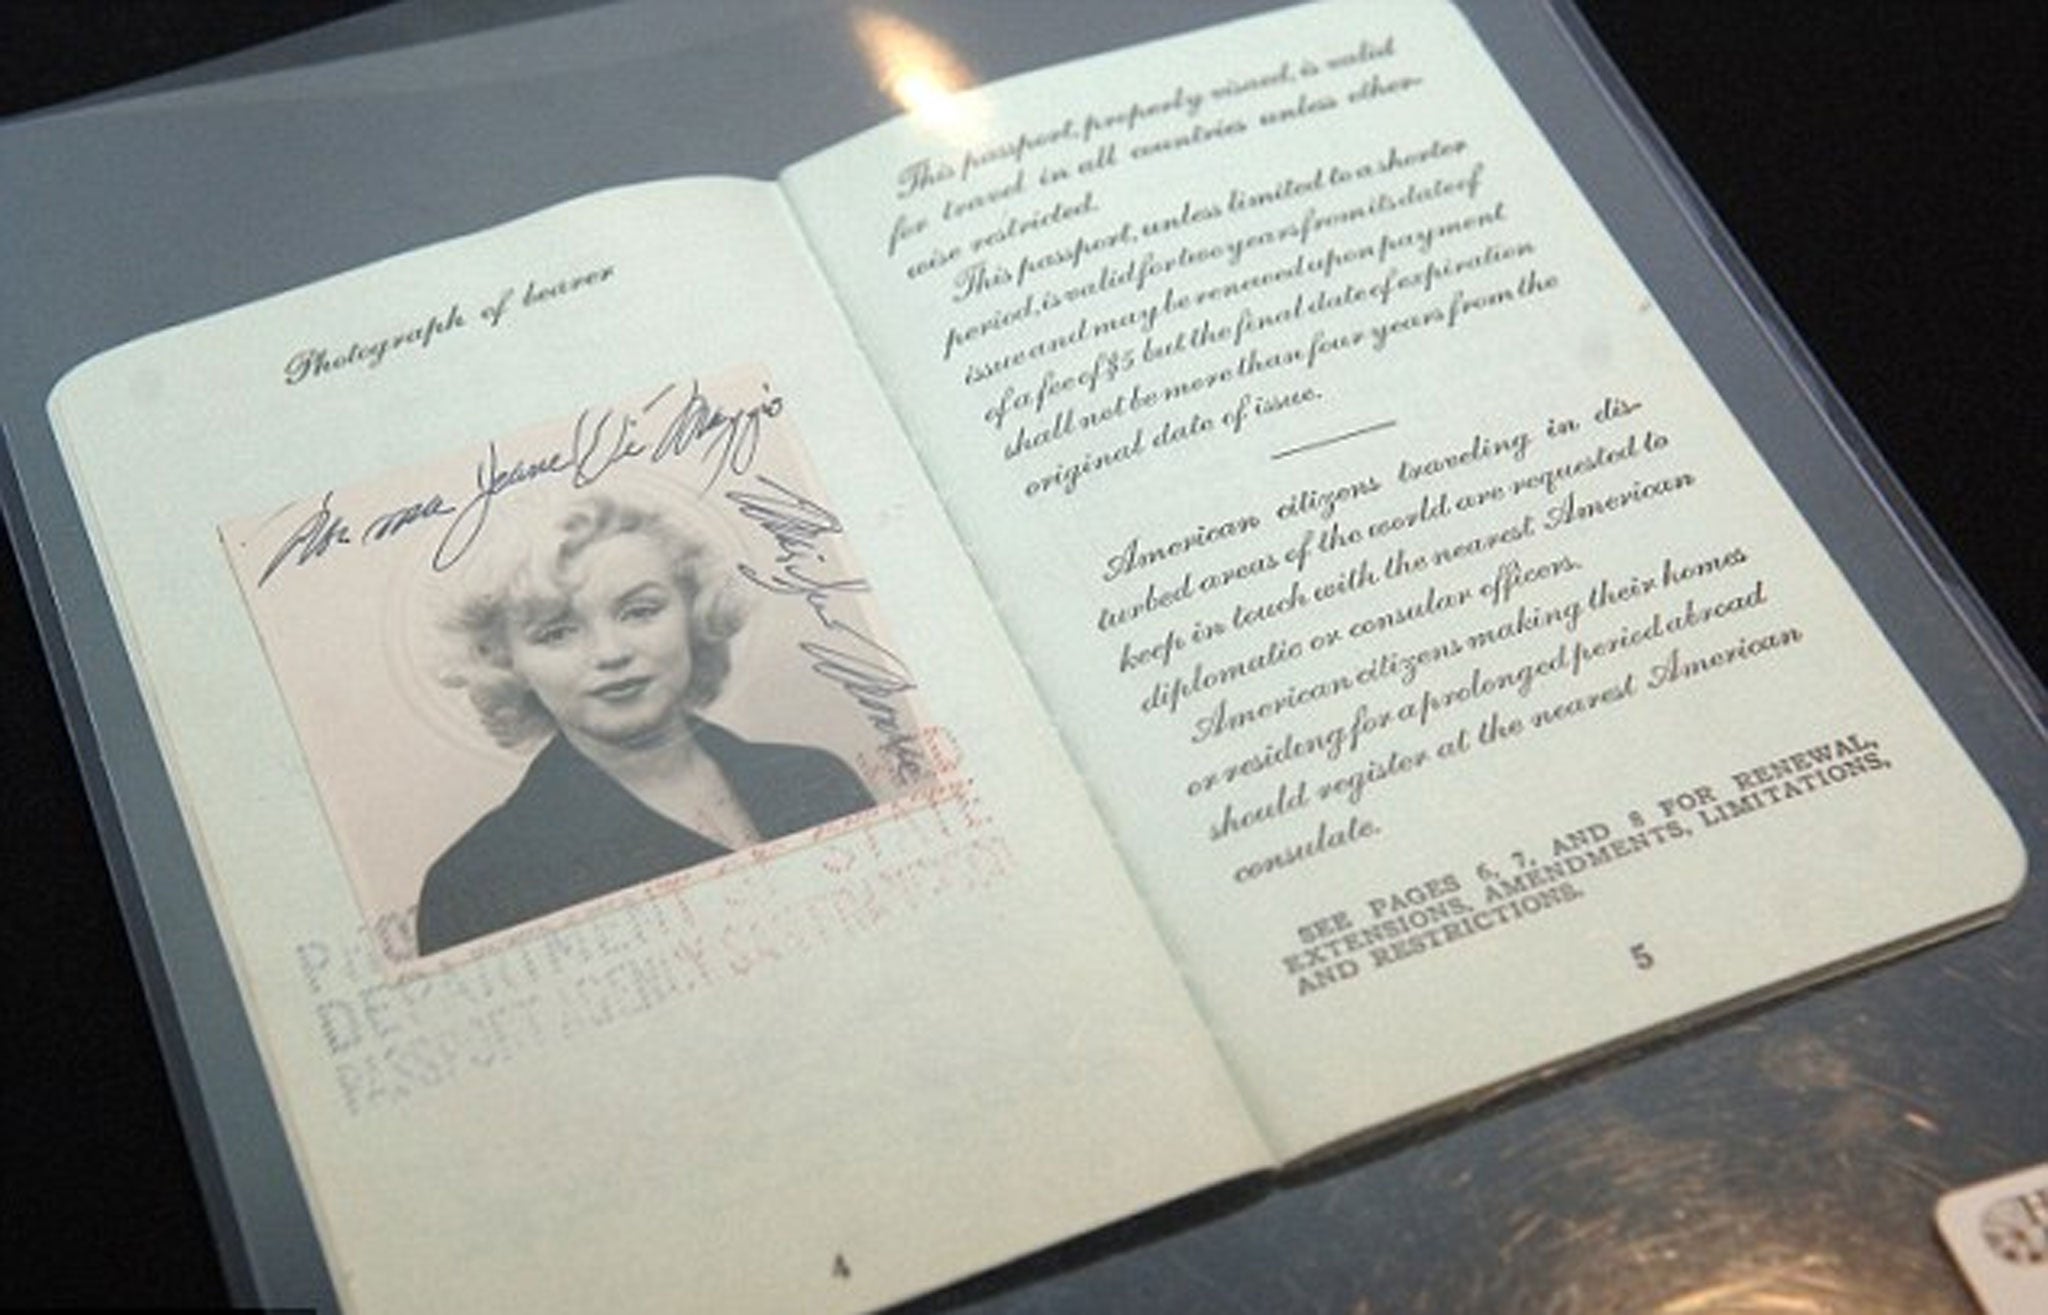 Photograph of bearer
Norma Jeane Di Maggio
Marilyn Monroe
4
This passport, properly visaed, is valid
for travel in all countries unless other-
wise restricted.
This passport, unless limited to a shorter
period, is valid for two years from its date of
issue and may be renewed upon payment
of a fee of $5 but the final date of expiration
shall not be more than four years from the
original date of issue.
American citizens traveling in dis-
turbed areas of the world are requested to
keep in touch with the nearest American
diplomatic or consular officers.
American citizens making their homes
or residing for a prolonged period abroad
should register at the nearest American
consulate.
SEE PAGES 6, 7, AND 8 FOR RENEWAL,
EXTENSIONS, AMENDMENTS, LIMITATIONS,
AND RESTRICTIONS.
5